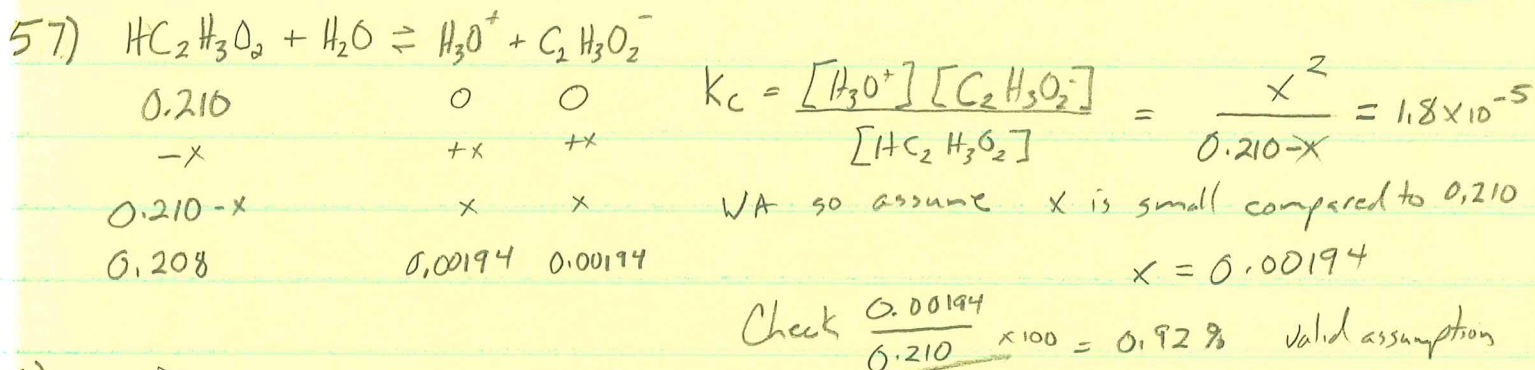 57) HC₂H₃O₂ + H₂O ⇌ H₃O⁺ + C₂H₃O₂⁻
0.210 0 0
-x +x +x
0.210-x x x
0.208 0.00194 0.00194
Kc = [H₃O⁺][C₂H₃O₂⁻] / [HC₂H₃O₂] = x² / 0.210-x = 1.8x10⁻⁵
WA so assume x is small compared to 0.210
x = 0.00194
Check 0.00194 / 0.210 x100 = 0.92 % valid assumption